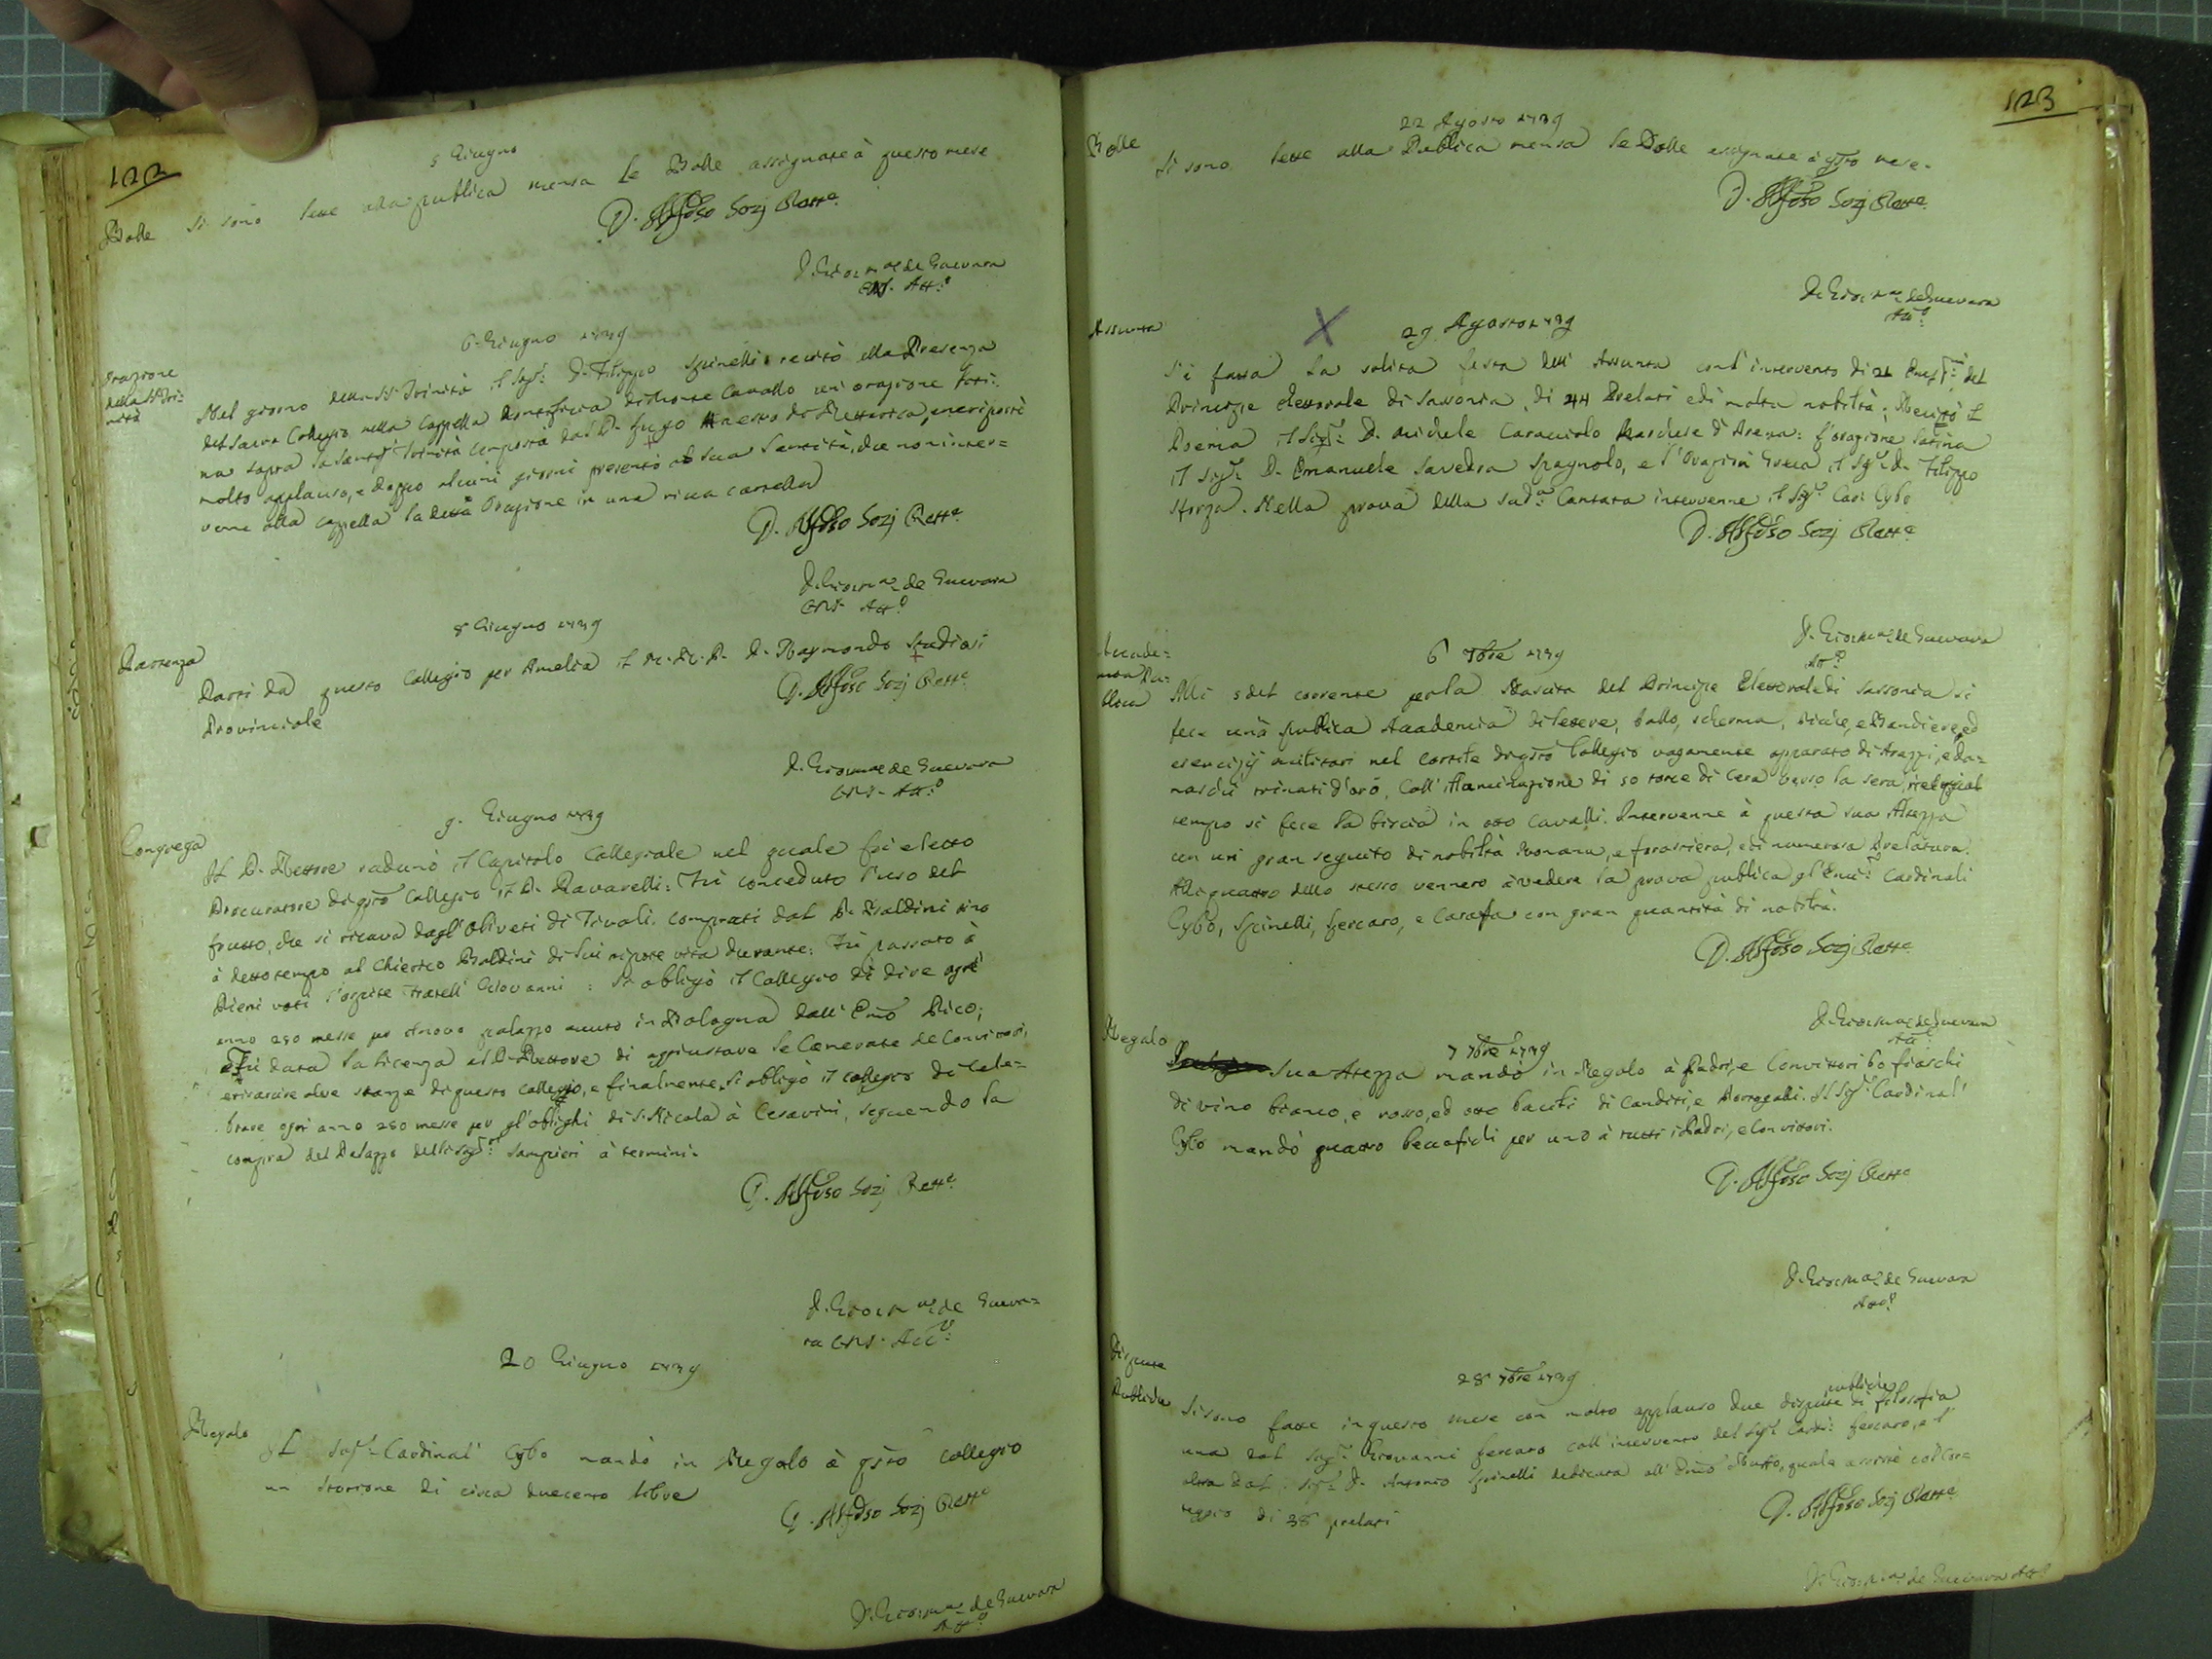 122
5 Giugno
Bolle Si sono lette alla publica mensa le Bolle assignate à questo mese
D. Alfoso Sozj Rett.e
D. Gio: M.a de Guevara
CRS. Att.o
6 Giugno 1739
Orazione
della SS. Tri:
nità
Nel giorno della SS. Trinità il Sig.r D. Filippo Spinelli recitò alla Presenza
del Sacro Collegio nella Cappella Pontificia di Monte Cavallo un orazione lati:
na sopra la Santis.ma Trinità composta dal P. Maestro di Rettorica, ne riportò
molto applauso, e doppo alcuni giorni presentò a sua Santità, che non inter=
venne alla cappella la detta Orazione in una ricca cartella
D. Alfoso Sozj Rett.e
D. Gio: M.a de Guevara
CRS. Att.o
8 Giugno 1739
Partenza
Partì da questo Collegio per Amelia il M. R. P. D. Raymondo Studiosi
Provinciale
D. Alfoso Sozj Rett.e
D. Gio: M.a de Guevara
CRS. Att.o
9. Giugno 1739
Congrega
Il P. Rettore radunò il Capitolo Collegiale nel quale fù eletto
Procuratore di qsto Collegio il P. Ravarelli: Fù conceduto l'uso del
frutto, che si ricava dagl'Oliveti di Tivoli comprati dal P. Baldini sino
à detto tempo al Chierico Baldini di lui nipote vita durante: Fù passato à
Pieni voti l'ospite Fratell' Giovanni: Si obligò il Collegio di dire ogni
anno 250 messe per il nuovo palazzo auuto in Bologna dall' Emo Pico;
Fù data la licenza al P. Rettore di aggiustare le Camerate de Convittori,
e risarcire altre stanze di questo collegio, e finalmente si obligò il collegio di cele=
brare ogni anno 250 messe per gl'oblighi di S. Nicola à Cesarini, seguendo la
compra del Palazzo delli Sig.ri Sampieri à termini.
D. Alfoso Sozj Rett.e
D. Gio: M.a de Gueva=
ra CRS. Att.o
20 Giugno 1739
Regalo
Il Sig.r Cardinal' Cybo mandò in Regalo à qsto collegio
un Storione di circa duecento libre
D. Alfoso Sozj Rett.e
D. Gio: M.a de Guevara
Att.o
123
22 Agosto 1739
Bolle
Si sono lette alla Publica mensa le Bolle assignate à qsto mese.
D. Alfoso Sozj Rett.e
D. Gio: M.a de Guevara
Att.o
Assunta
X 29 Agosto 1739
Si fatta la solita festa dell' Assunta con l'intervento di 21 del
Principe elettorale di Sassonia, di 44 Prelati e di molta nobiltà: Recitò il
Poema il Sig.r D. Michele Caracciolo Marchese d'Arena: l'orazione latina
il Sig.r D. Emanuele Savedra Spagnolo, e l'Orazion Greca il Sig.r D. Filippo
Sforza. Nella prova della sud.a Cantata intervenne il Sig.r Card. Cybo
D. Alfoso Sozj Rett.e
D. Gio: M.a de Guevara
Att.o
6 7bre 1739
Accade=
mia Pu=
blica
Alli 5 del corrente per la Nascita del Principe Elettorale di Sassonia si
fece una publica Accademia di lettere, ballo, scherma, Picche, e Bandiere, ed
esercizij militari nel cortile di qsto Collegio vagamente apparato di Arazzi, e da=
maschi trinati d'oro, coll'illuminazione di 50 torce di Cera verso la sera, nel qual
tempo si fece la biscia in otto cavalli. Intervenne à questa sua Altezza
con un gran seguito di nobiltà Romana, e forastiera, e di numerosa Prelatura.
Alli quattro dello stesso vennero à vedere la prova publica gl'Emi: Cardinali
Cybo, Spinelli, Porcaro, e Carafa con gran quantità di nobiltà.
D. Alfoso Sozj Rett.e
D. Gio: M.a de Guevara
Att.o
7 7bre 1739
Regalo
Sua Altezza mandò in Regalo à Padri, e Convittori 60 fiaschi
di vino bianco, e rosso, ed otto bacili di Canditi, e Portogalli. Il Sig.r Cardinal'
Cybo mandò quattro beccafichi per uno à tutti i Padri, e Convittori.
D. Alfoso Sozj Rett.e
D. Gio: M.a de Guevara
Att.o
28 7bre 1739
Dispute
Publiche
publiche
Si sono fatte in questo mese con molto applauso due dispute di filosofia
una dal Sig.r Giovanni Porcaro coll'intervento del Sig.r Card: Porcaro, e l'
altra dal Sig.r D. Antonio Spinelli dedicata all' Emo Ruffo, quale assistè col cor=
teggio di 38 prelati
D. Alfoso Sozj Rett.e
D. Gio: M.a de Guevara Att.o